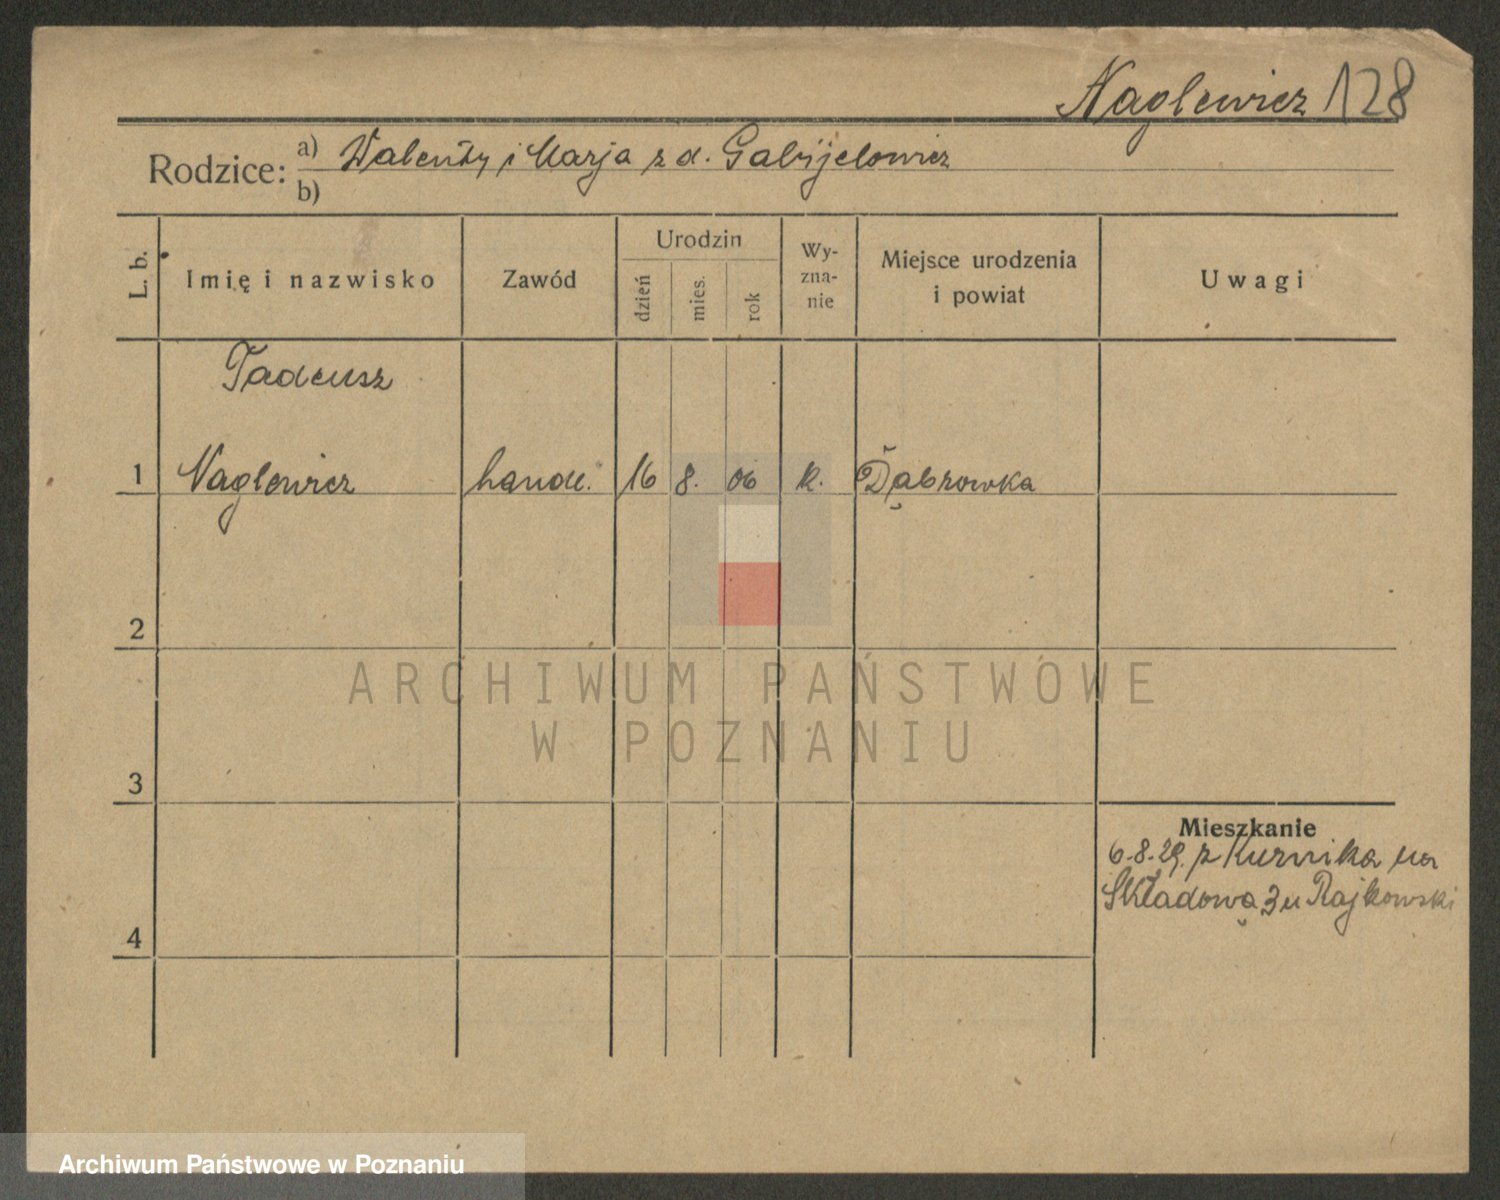 Naglewicz 128
Rodzice: a) Walenty i Marja z d. Gabryelowicz
b)
L. b.
Imię i nazwisko
Zawód
Urodzin
dzień
mies.
rok
Wy-
zna-
nie
Miejsce urodzenia
i powiat
Uwagi
Tadeusz
1 Naglewicz handl. 16 8. 06 k. Dąbrowka
2
3
4
Mieszkanie
6.8.29. z Kurnika na
Składową 3 u Rajkowski
ARCHIWUM PAŃSTWOWE
W POZNANIU
Archiwum Państwowe w Poznaniu